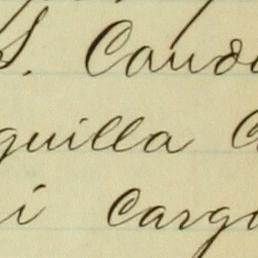 S. Cando
quilla C
i cargo